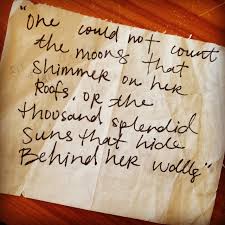 "One could not count
the moons that
shimmer on her
Roofs, or the
thousand splendid
Suns that hide
Behind her walls"